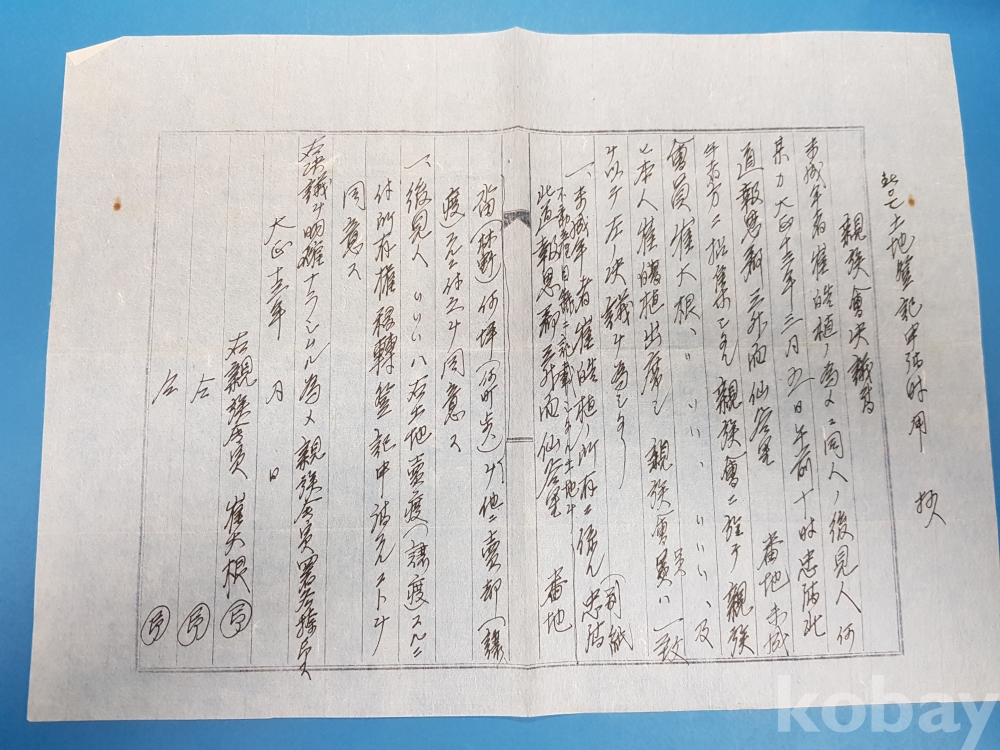 土地登記申請時用
親族會決議書
未成年者崔皓植ノ為メニ同人ノ後見人何
某カ大正十三年三月五日午前十時忠清北
道報恩郡三升面仙谷里 番地未成
年者方ニ招集シタル親族會ニ於テ親族
會員崔大根、〃〃〃、〃〃〃、及
ヒ本人崔皓植出席シ親族會員ハ一致
ヲ以テ左ノ決議ヲ為シタリ
一、未成年者崔皓植ノ所有ニ係ル(別紙
不動産目録ニ記載シタル土地ヲ)忠清
北道報恩郡三升面仙谷里 番地
畓(林野)何坪(何町步)ヲ他ニ賣却(讓
渡)スルコトヲ同意ス
一、後見人〃〃〃ハ右土地賣渡(讓渡)スルニ
付所有權移轉登記申請スルコトヲ
同意ス
右決議ヲ明確ナラシムル為メ親族會員署名捺印ス
大正十三年 月 日
右親族會員 崔大根 印
仝 印
仝 印
kobay